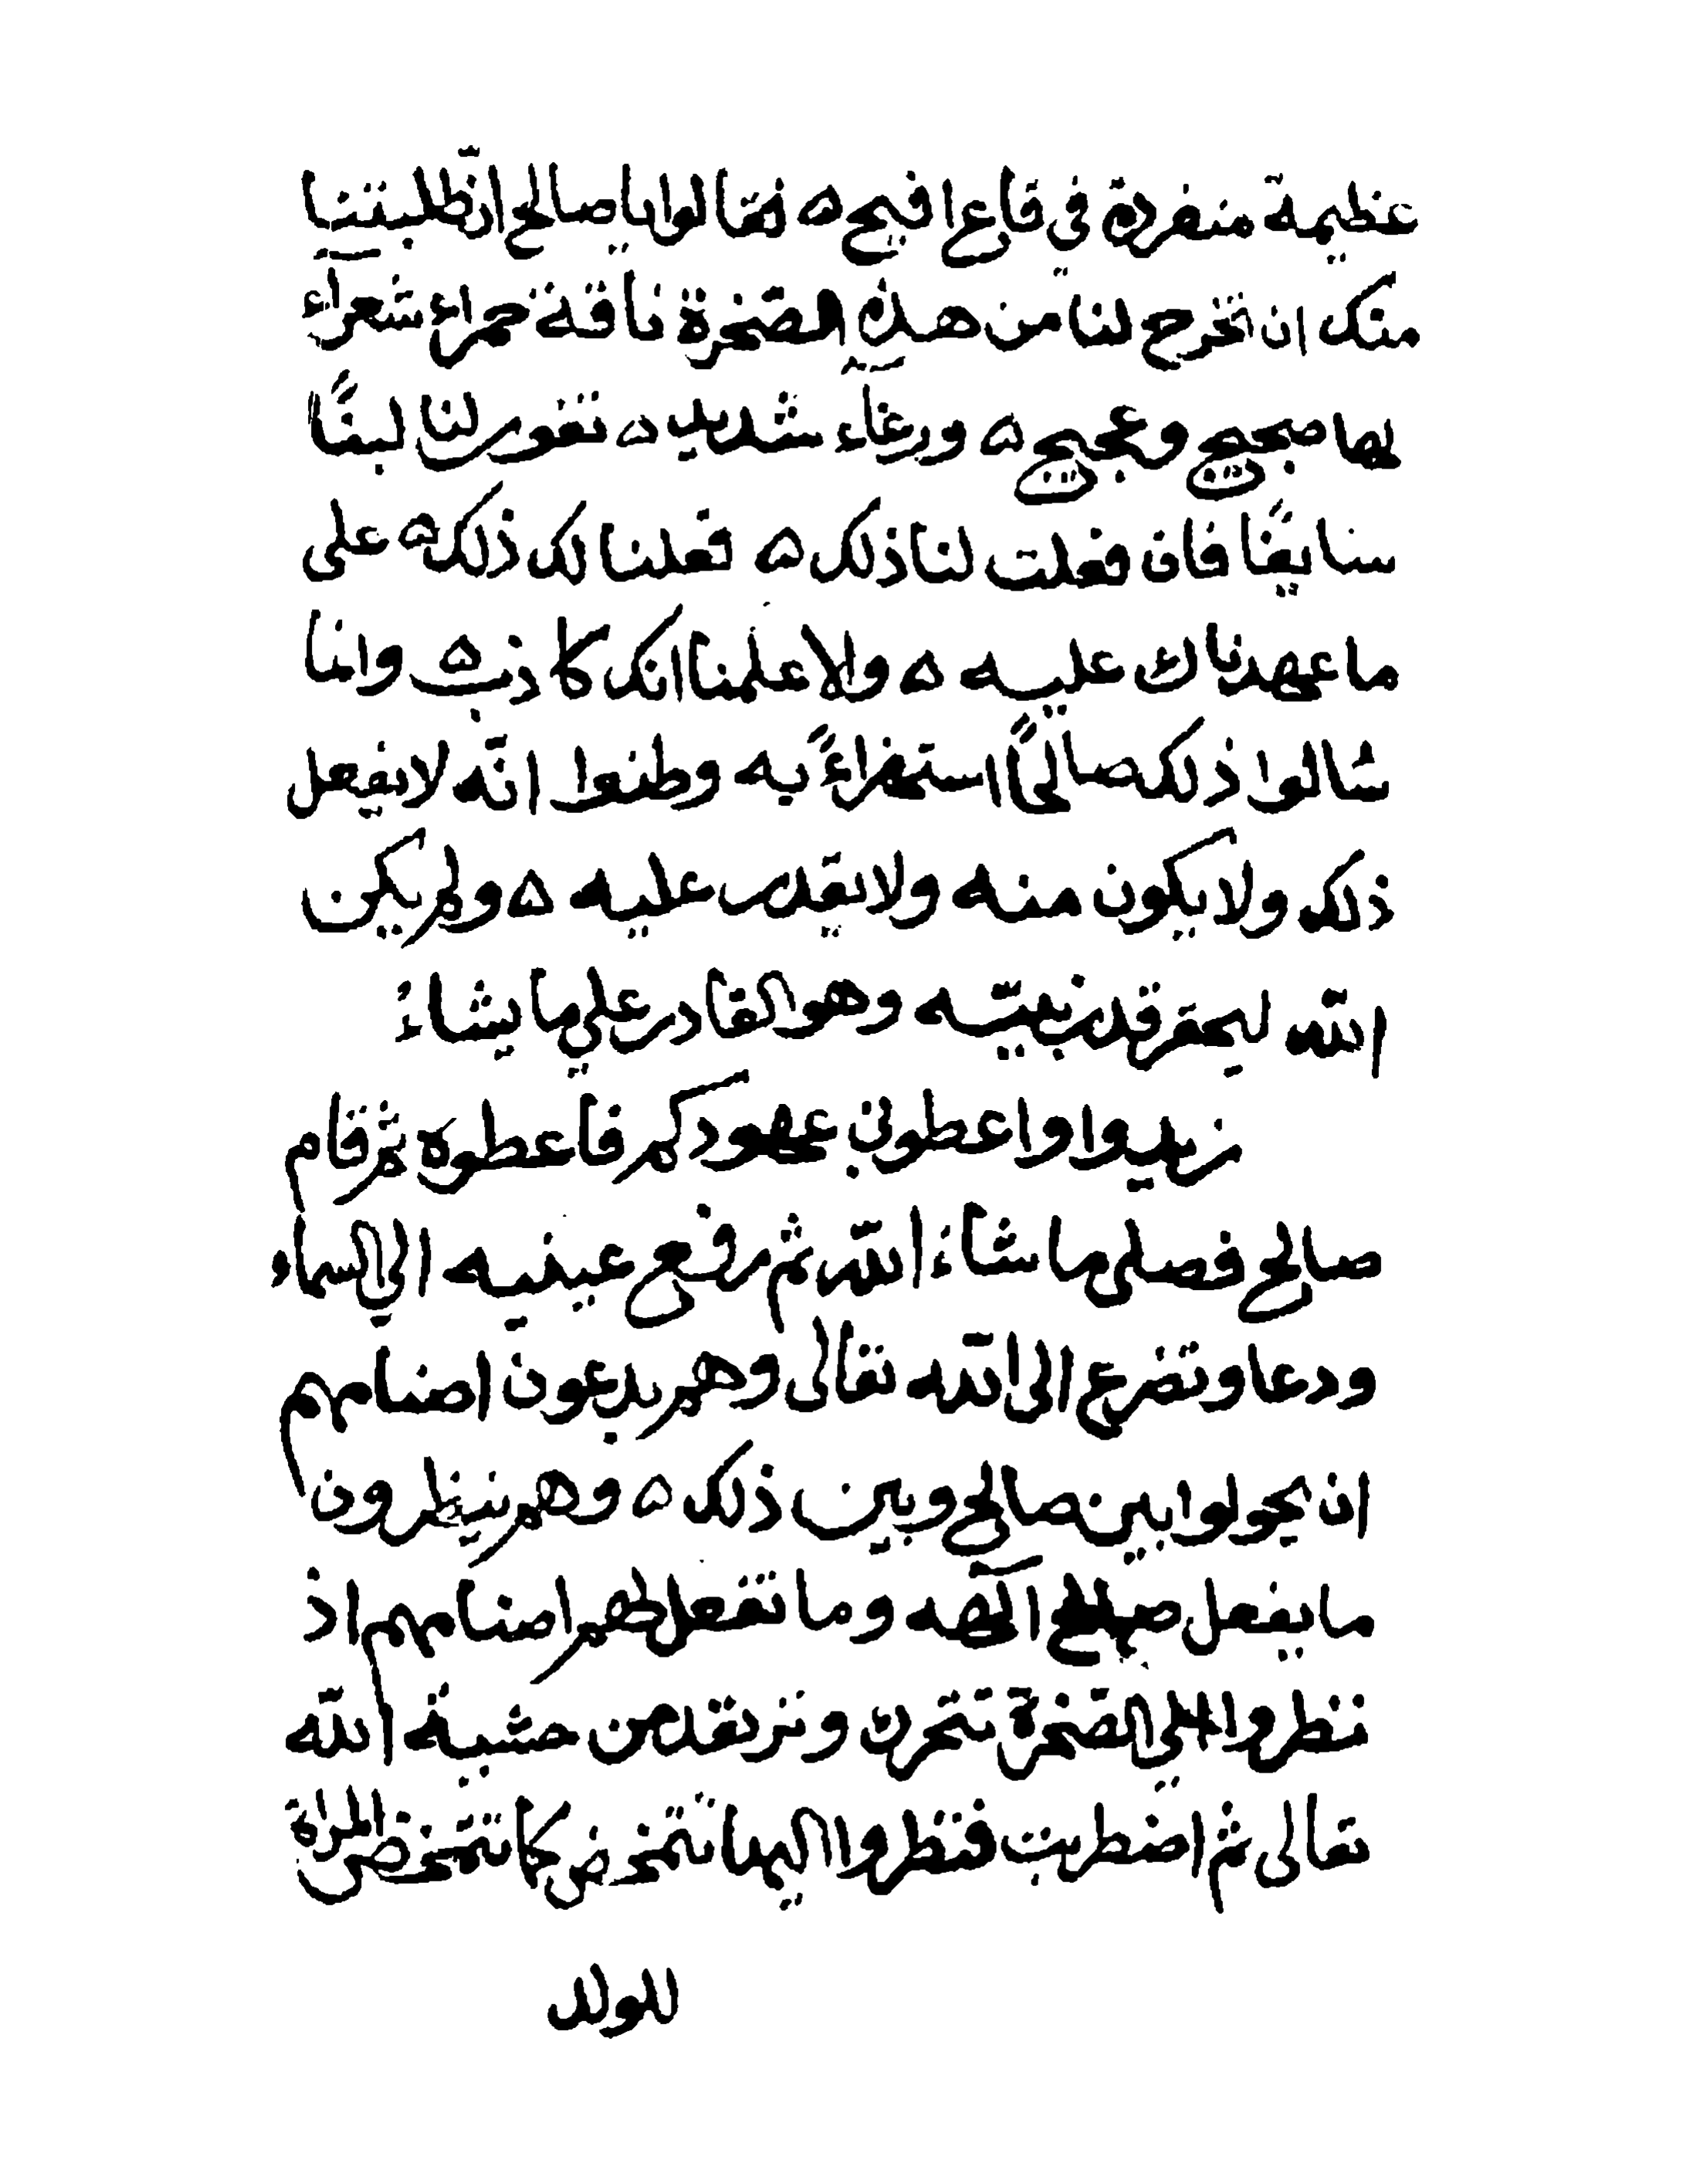 عظيمة منفردة في قاع افيح ه فقالوا يا صالح انّ طلبتنا
منك ان تخرج لنا من هذه الصخرة ناقة حمراء شعرآء
لها ضجيج وعجيج ه ورغآء شديد ه تفور لنا لبنًا
سايغًا فان فعلت لنا ذلك ه فعلنا لك ذلك ه على
ما عهدناك عليه ه والا علمنا انك كاذب ه وانما
سالوا ذلك صالحًا استهزاءً به وظنوا انّه لا يفعل
ذلك ولا يكون منه ولا يقدر عليه ه ولم يكن
الله ليحقر قدر نبيّه وهو القادر على ما يشاءُ
زيدوا واعطوني عهودكم فاعطوه ثم قام
صالح فصلى ما شاءَ الله ثم رفع عينيه الي السماء
ودعا وتضرع الى الله تعالى وهم يدعون اصنامهم
ان يحولوا بين صالح وبين ذلك ه وهم ينظرون
ما يفعل صالح آلهه وما تفعل لهم اصنامهم اذ
نظروا الي الصخرة تتحرك وترتعد من خشية الله
تعالى ثم اضطربت فنظروا اليها تتمخوض كما تتمخوض المراة
للولد